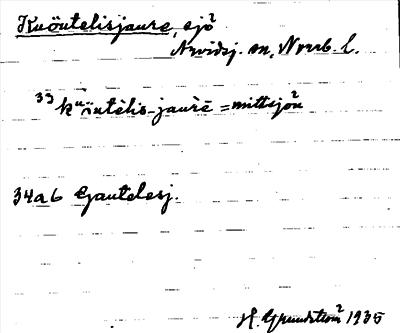 Kuöutelisjaure, sjö
Arvidsj. sn, Norrb. l.
33 kuöutēlis-jaurē = mittsjön
34a6 Gautelesj.
H. Grundström 1935